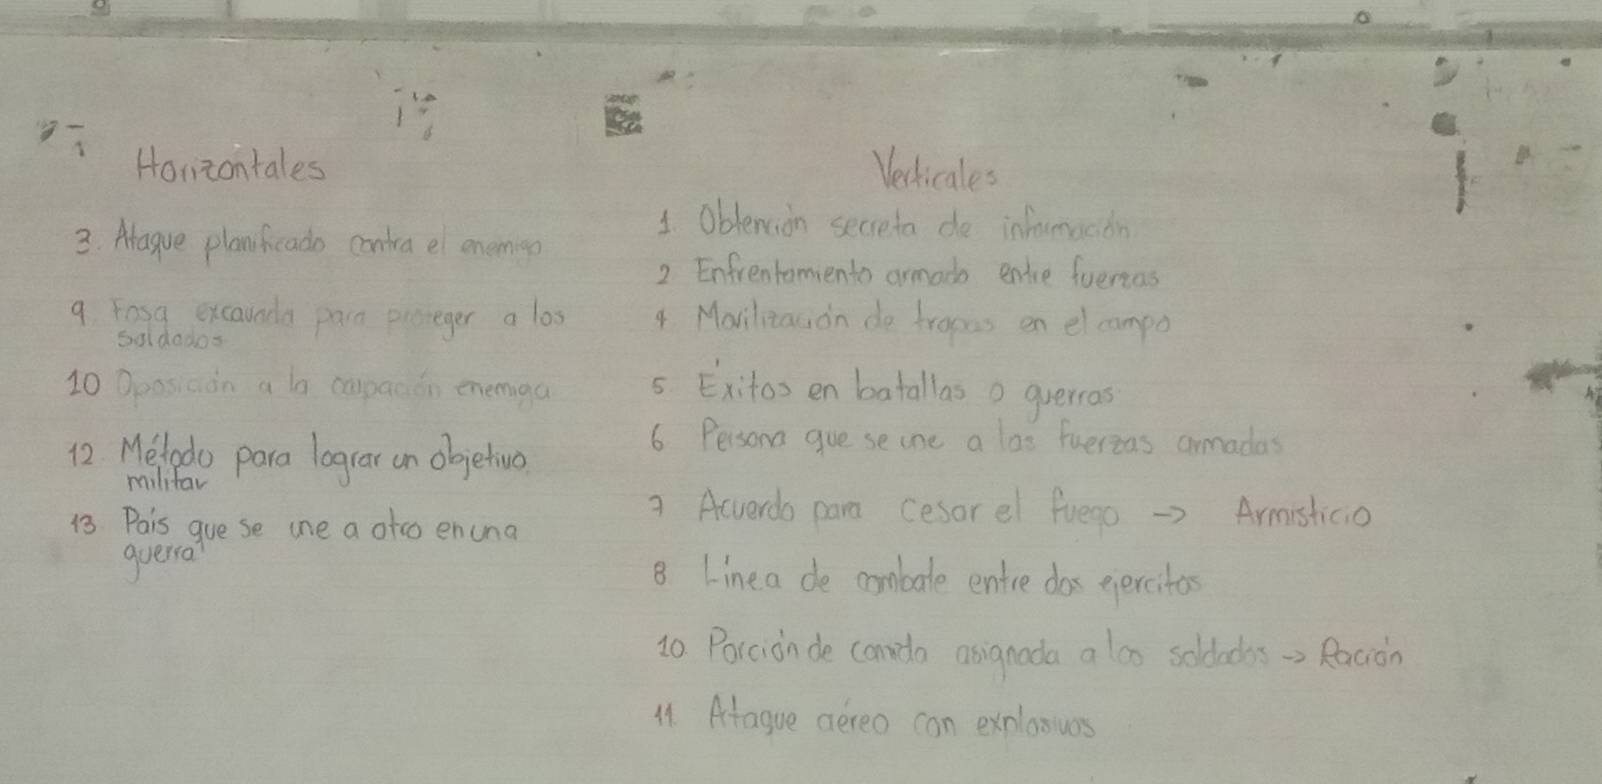 Horizontales
3. Ataque planificado contra el enemigo
9 Fosa excavada para proteger a los
soldados
10 Oposición a la ocupación enemiga
12 Método para lograr un objetivo
militar
13 País que se une a otro en una
guerra
Verticales
1 Obtención secreta de información
2 Enfrentamiento armado entre fuerzas
4 Movilización de tropas en el campo
5 Éxitos en batallas o guerras
6 Persona que se une a las fuerzas armadas
7 Acuerdo para cesar el fuego → Armisticio
8 Línea de combate entre dos ejercitos
10 Porción de comida asignada a los soldados → Ración
11 Ataque aéreo con explosivos